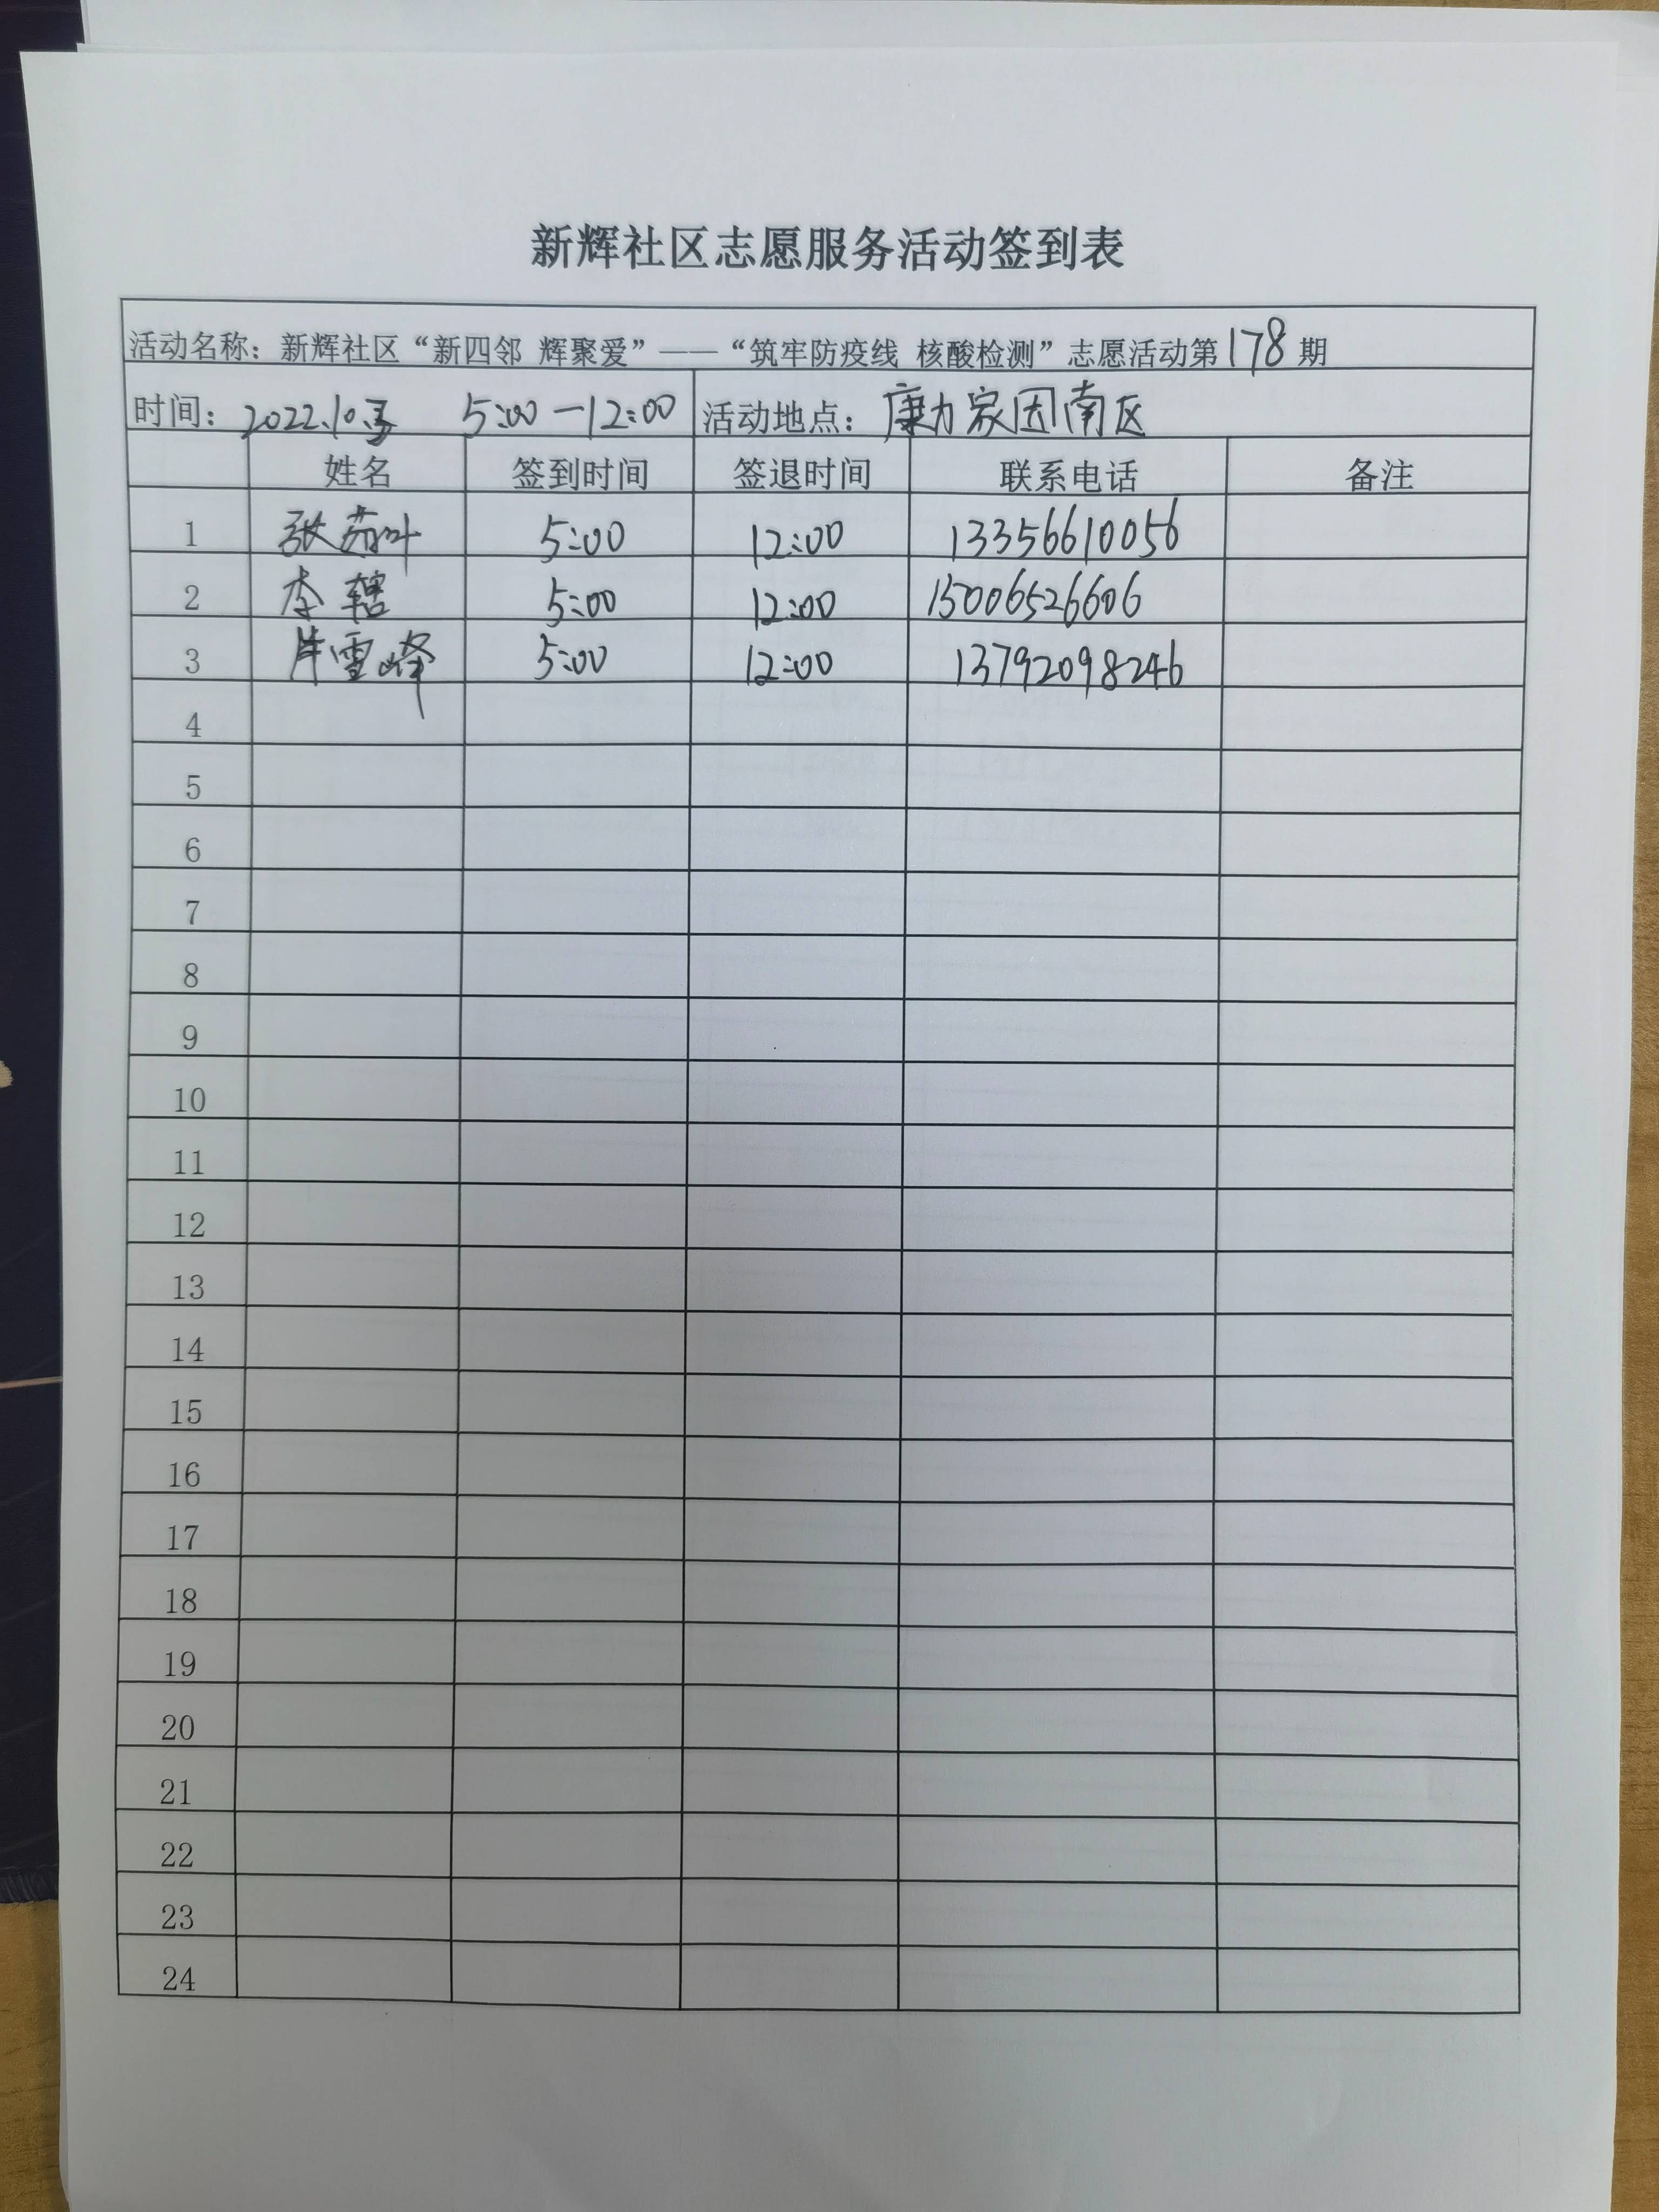 新辉社区志愿服务活动签到表
活动名称：新辉社区“新四邻 辉聚爱”——“筑牢防疫线 核酸检测”志愿活动第178期
时间：2022.10. 5:00—12:00 活动地点：康力家园南区
姓名 签到时间 签退时间 联系电话 备注
1 张 叶 5:00 12:00 13356610056
2 李辖 5:00 12:00 15006526606
3 雪峰 5:00 12:00 13792098246
4
5
6
7
8
9
10
11
12
13
14
15
16
17
18
19
20
21
22
23
24